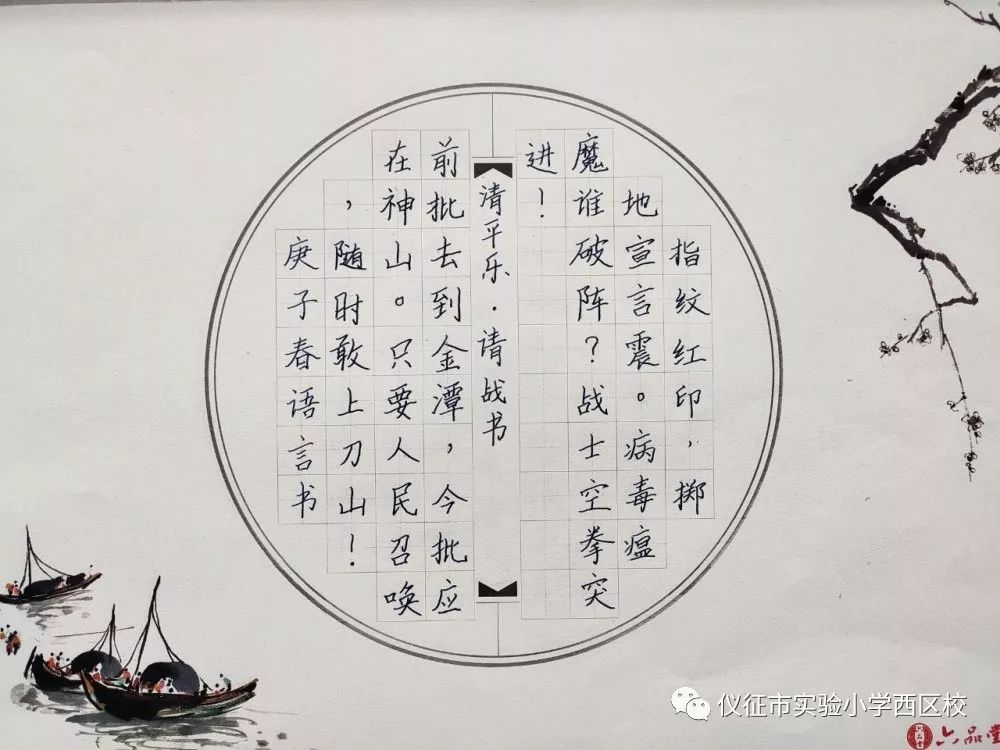 指纹红印，掷
地宣言震。病毒瘟
魔谁破阵？战士空拳突
进！
清平乐·请战书
前批去到金潭，今批应
在神山。只要人民召唤
，随时敢上刀山！
庚子春语言书
仪征市实验小学西区校
六品堂